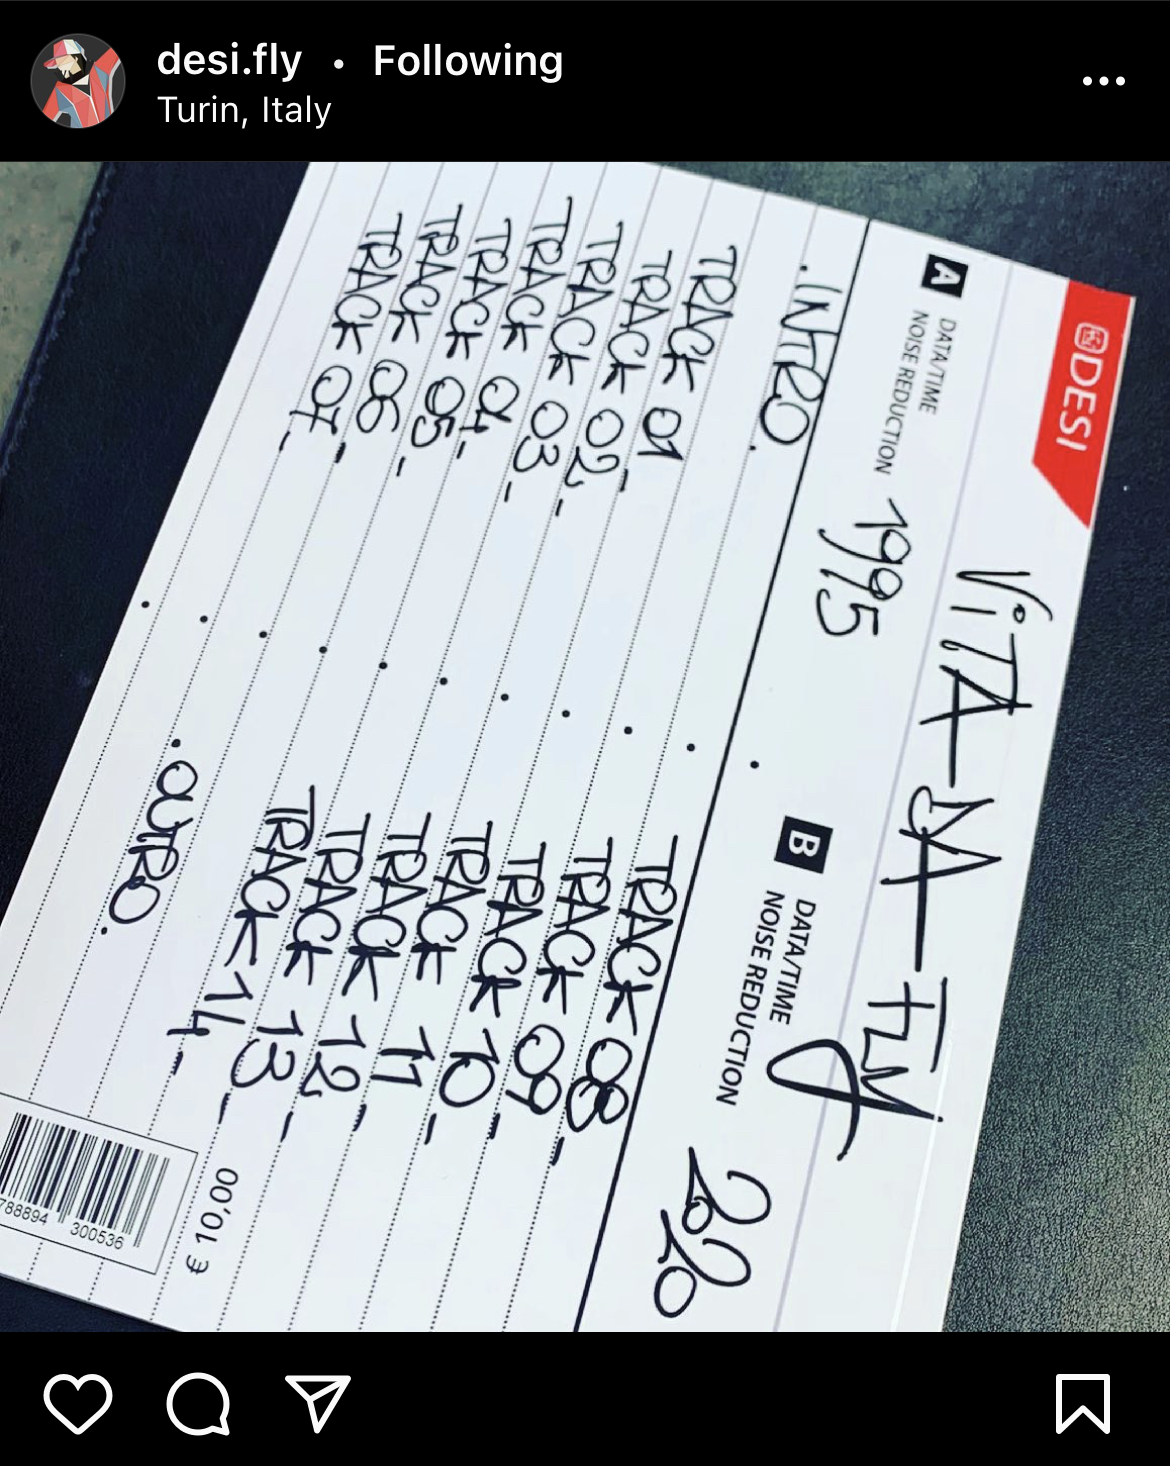 desi.fly • Following
Turin, Italy
DESI
ViTA-DA-FLy
A DATA/TIME
NOISE REDUCTION 1995
B DATA/TIME
NOISE REDUCTION 2020
.INTRO.
TRACK 01-
TRACK 02-
TRACK 03-
TRACK 04-
TRACK 05-
TRACK 06-
TRACK 07-
TRACK 08-
TRACK 09-
TRACK 10-
TRACK 11-
TRACK 12-
TRACK 13-
TRACK 14-
.OUTRO.
€ 10,00
788894 300536